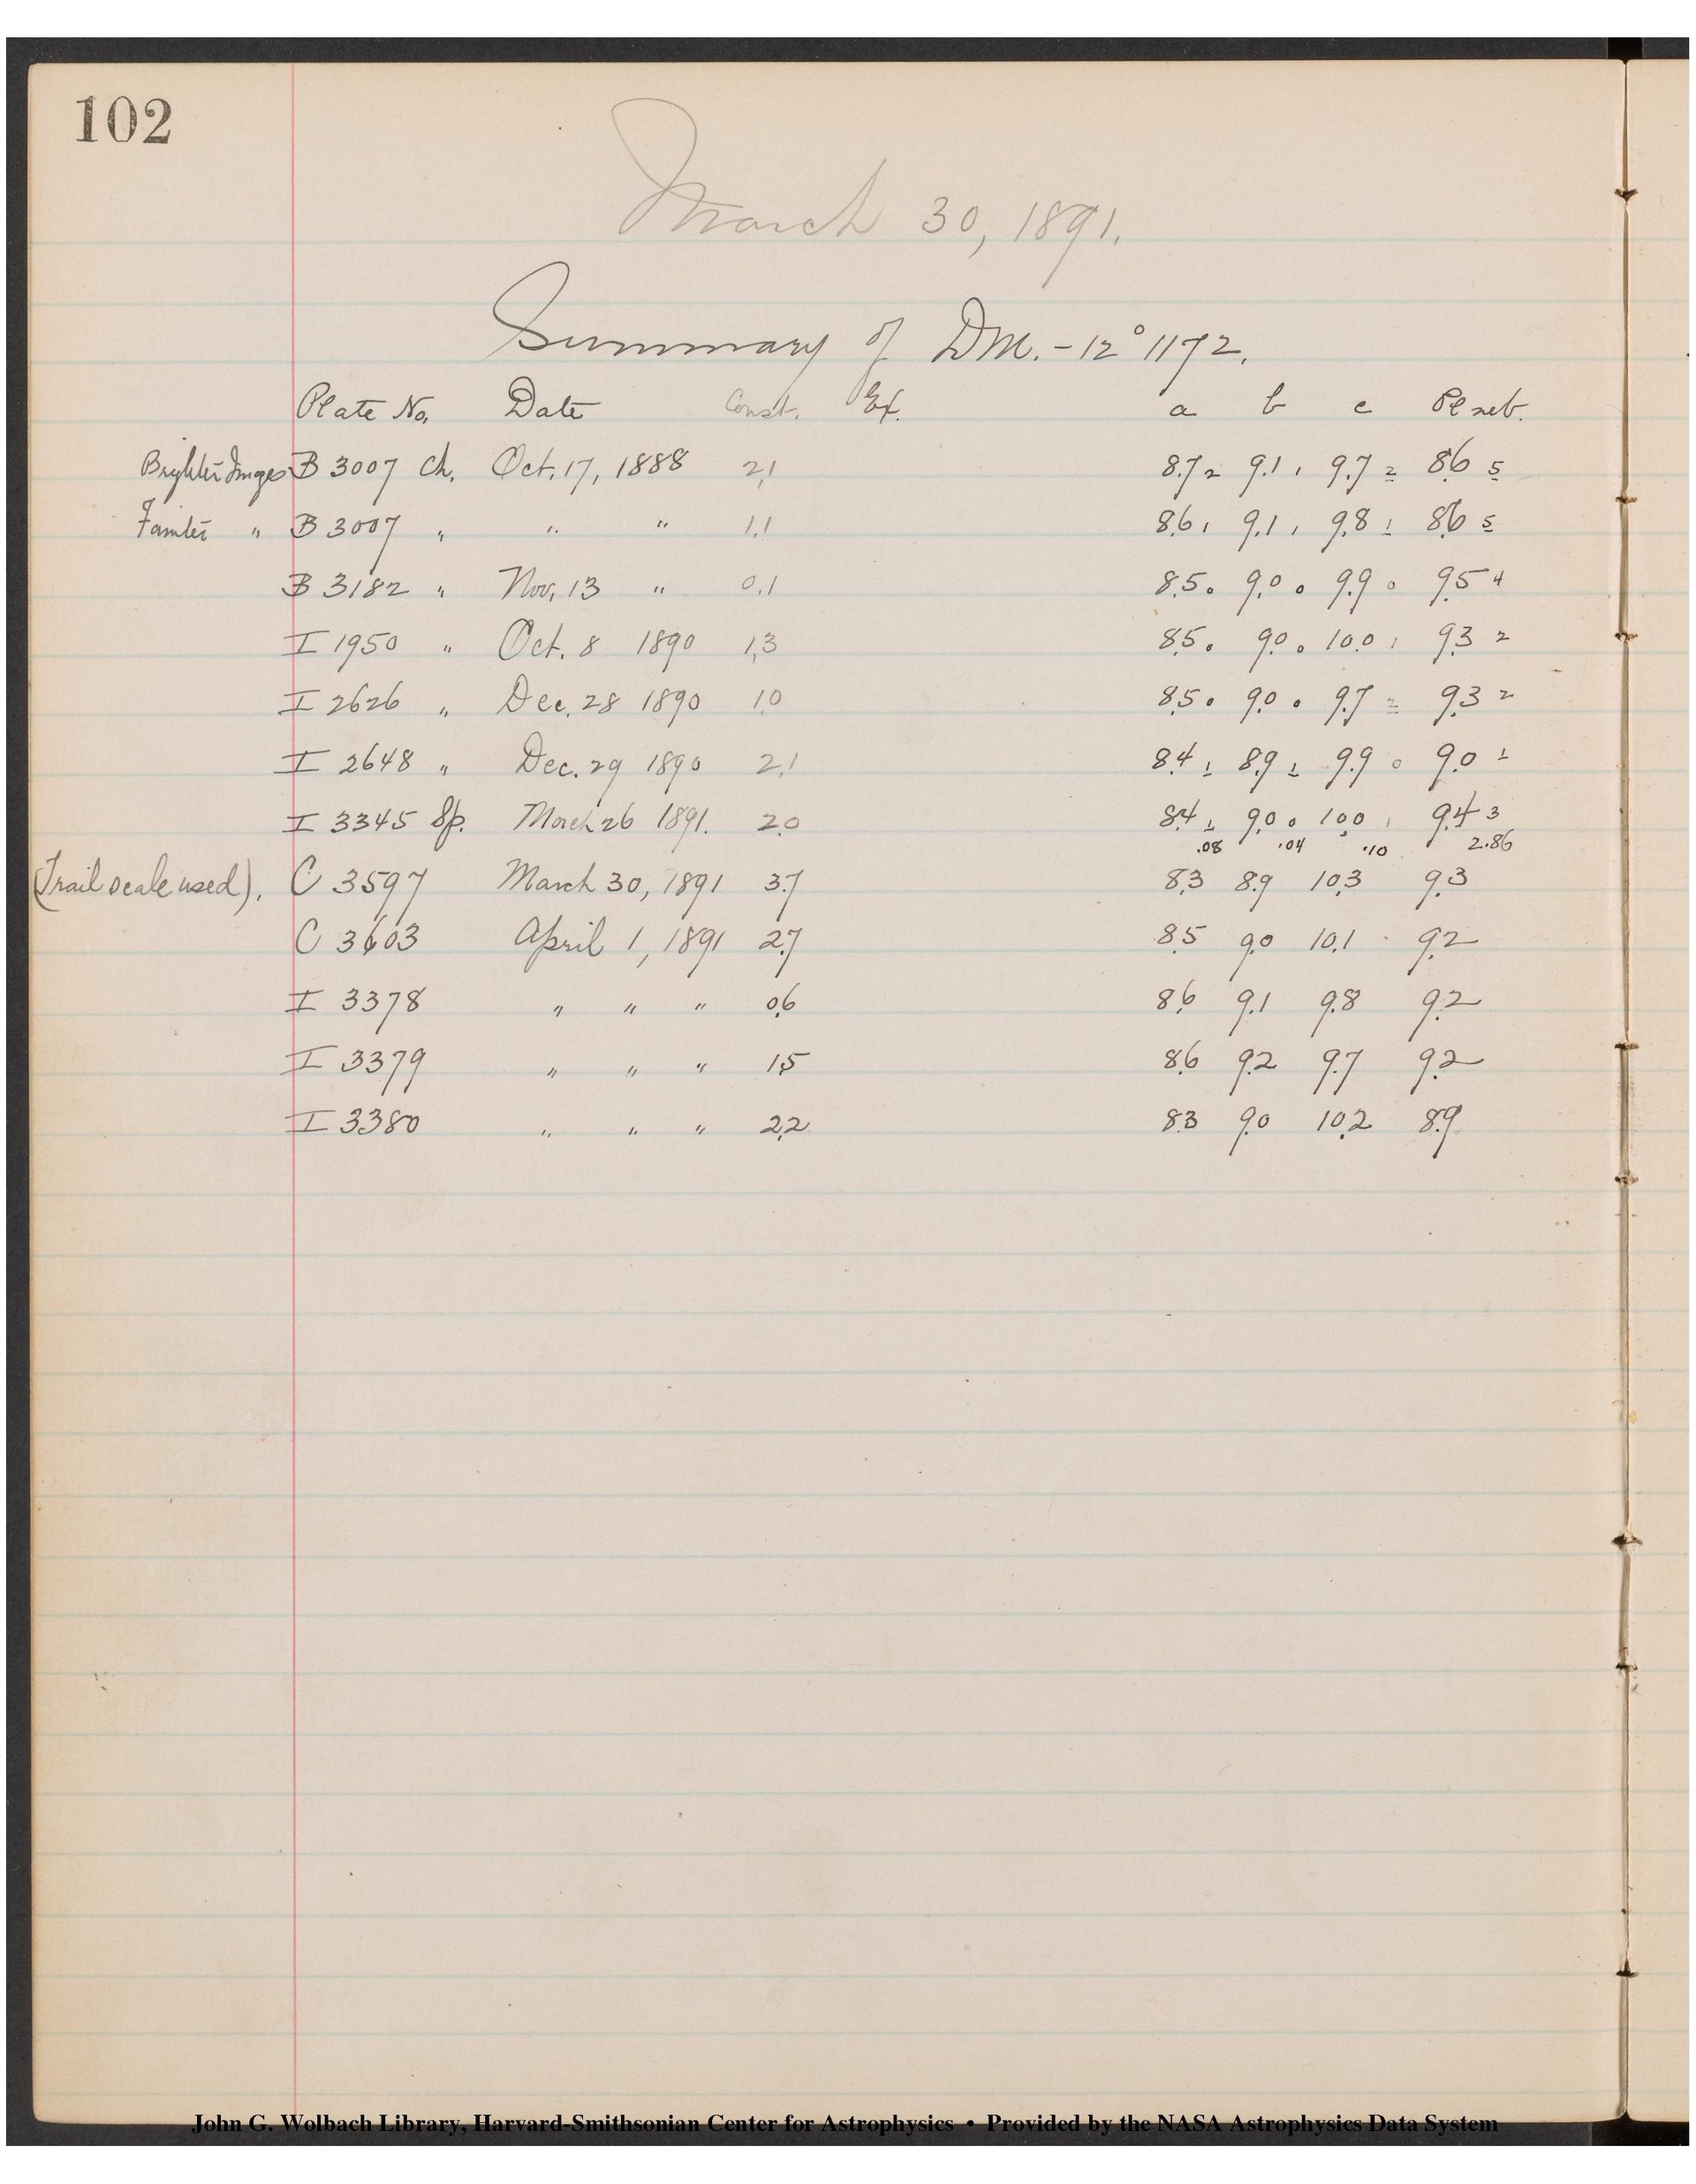 102
March 30, 1891.
Summary of DM. -12° 1172.
Plate No. Date Const. Ex. a b c Pl neb.
Brighter Images B 3007 Ch. Oct. 17, 1888 2,1 8.7 2 9.1 1 9.7 2 8.6 5
Fainter " B 3007 " " " 1,1 8.6 1 9.1 1 9.8 1 8.6 5
B 3182 " Nov. 13 " 0,1 8.5 0 9.0 0 9.9 0 9.5 4
I 1950 " Oct. 8 1890 1,3 8.5 0 9.0 0 10.0 1 9.3 2
I 2626 " Dec. 28 1890 1.0 8.5 0 9.0 0 9.7 2 9.3 2
I 2648 " Dec. 29 1890 2,1 8.4 1 8.9 1 9.9 0 9.0 1
I 3345 Sp. March 26 1891. 2.0 8.4 1 9.0 0 10.0 1 9.4 3
.08 .04 .10 2.86
(Trail scale used). C 3597 March 30, 1891 3.7 8.3 8.9 10.3 9.3
C 3603 April 1, 1891 2.7 8.5 9.0 10.1 9.2
I 3378 " " " 0.6 8.6 9.1 9.8 9.2
I 3379 " " " 1.5 8.6 9.2 9.7 9.2
I 3380 " " " 2.2 8.3 9.0 10.2 8.9
John G. Wolbach Library, Harvard-Smithsonian Center for Astrophysics • Provided by the NASA Astrophysics Data System